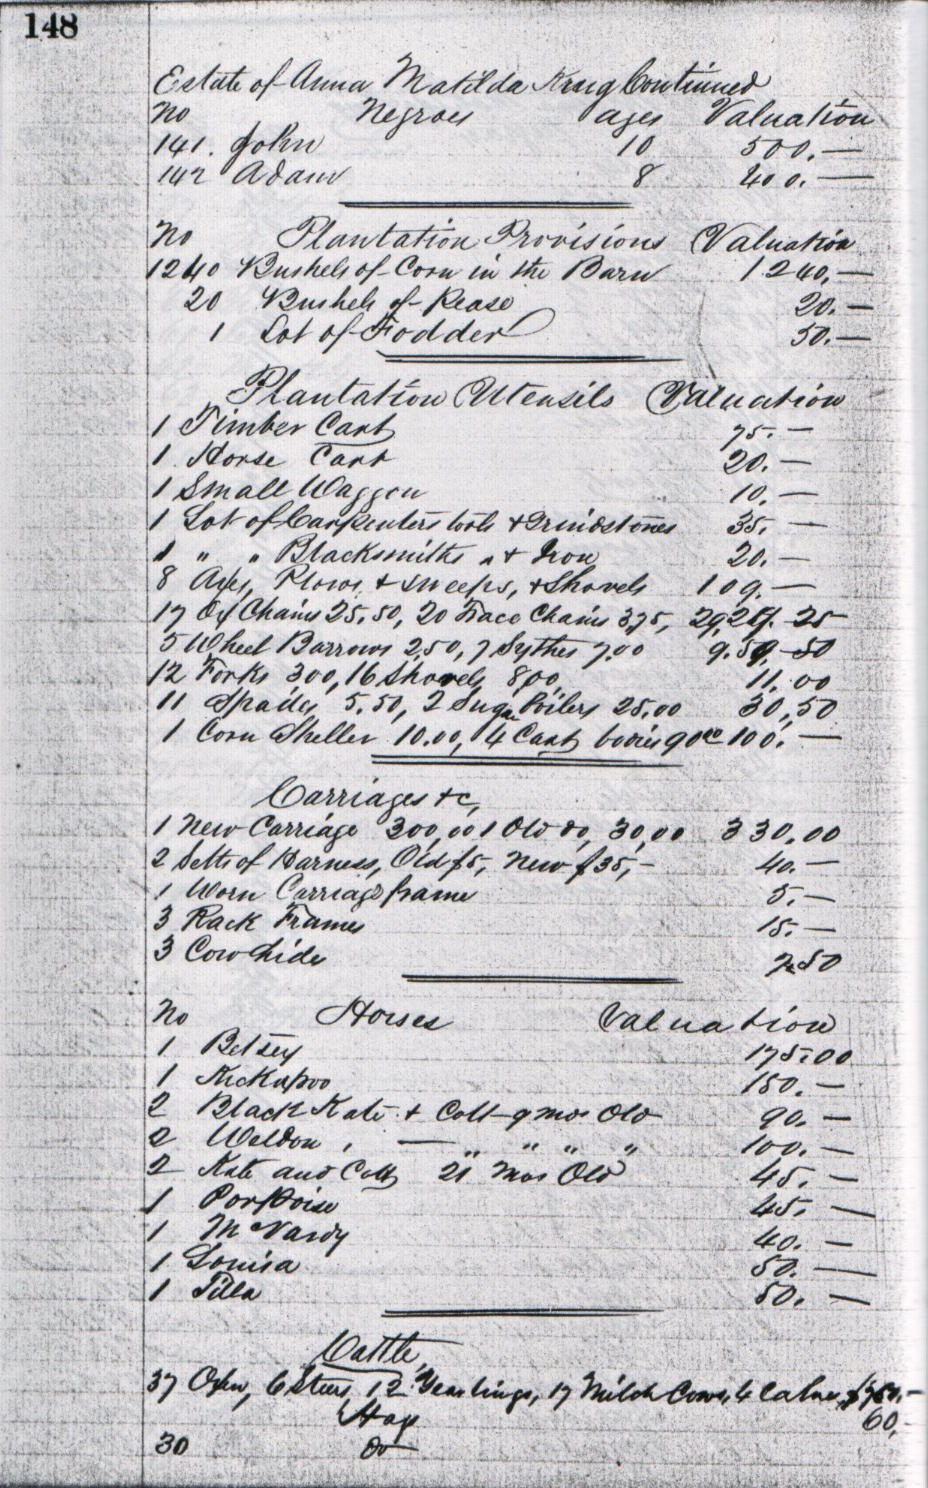 148
Estate of Anna Matilda King Continued
No Negroes ages Valuation
141. John 10 500.—
142 Adam 8 400.—
No Plantation Provisions Valuation
1240 Bushels of Corn in the Barn 1240,—
20 Bushels of Pease 20.—
1 Lot of Fodder 50.—
Plantation Utensils Valuation
1 Timber Cart 75.—
1 Horse Cart 20.—
1 Small Waggon 10.—
1 Lot of Carpenters tools & Grindstones 35.—
1 " " Blacksmiths " & Iron 20.—
8 Axes, Plows & Sweeps, & Shovels 109.—
17 Ox Chains 25.50, 20 Trace Chains 3.75, 29.25
5 Wheel Barrows 2.50, 7 Sythes 7.00 9.50
12 Forks 300, 16 Shovels 800, 11.00
11 Spades 5.50, 2 Sugar Boilers 25.00 30,50
1 Corn Sheller 10.00, 4 Cart bodies 90 00 100.—
Carriages &c,
1 New Carriage 300,00 1 Old do, 30,00 330.00
2 Setts of Harness, Old $5, New $35,— 40.—
1 Worn Carriage frame 5.—
3 Rack Frames 15.—
3 Cow hides 7.50
No Horses Valuation
1 Betsey 175.00
1 Kickapoo 150.—
2 Black Kate & Colt 9 mos Old 90.—
2 Weldon, — " " " 100.—
2 Kate and Colt 21 mos Old 45.—
1 Porpoise 45.—
1 McVardy 40.—
1 Louisa 50.—
1 Tilla 50.—
Cattle,
37 Oxen, 6 Steers 12 Yearlings, 17 Milch Cows, 4 Calves,
Hogs 60,—
30 do